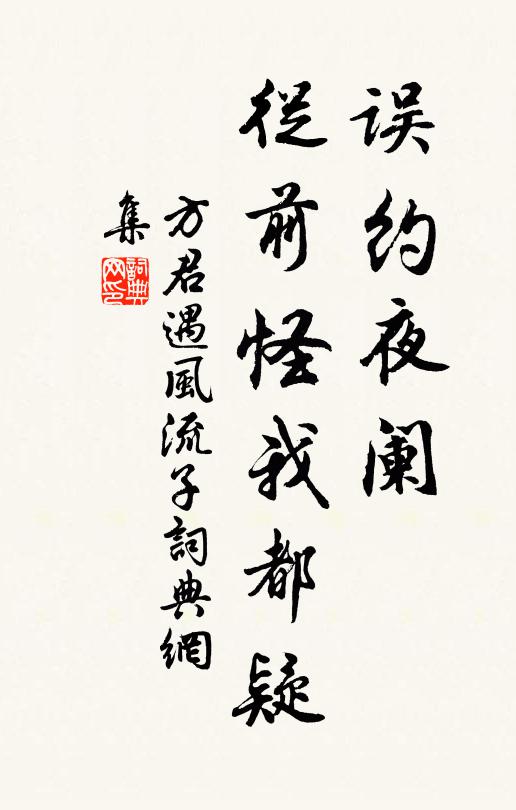 误约夜阑
從前怪我都疑
方君遇風流子詞典網
集
詞典
网印